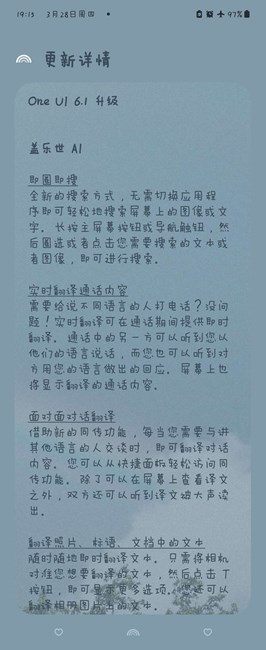 19:15 3月28日周四 • 97%
更新详情
One UI 6.1 升级
盖乐世 AI
即圈即搜
全新的搜索方式，无需切换应用程
序即可轻松地搜索屏幕上的图像或文
字。长按主屏幕按钮或导航触钮，然
后圈选或者点击您需要搜索的文本或
者图像，即可进行搜索。
实时翻译通话内容
需要给说不同语言的人打电话？没问
题！实时翻译可在通话期间提供即时
翻译。通话中的另一方可以听到您以
他们的语言说话，而您也可以听到对
方用您的语言做出的回应。屏幕上也
将显示翻译的通话内容。
面对面对话翻译
借助新的同传功能，每当您需要与讲
其他语言的人交谈时，即可翻译对话
内容。您可以从快捷面板轻松访问同
传功能。除了可以在屏幕上查看译文
之外，双方还可以听到译文被大声读
出。
翻译照片、标语、文档中的文本
随时随地即时翻译文本。只需将相机
对准您想要翻译的文本，然后点击 T
按钮，即可显示更多选项。您还可以
翻译相册图片上的文本。